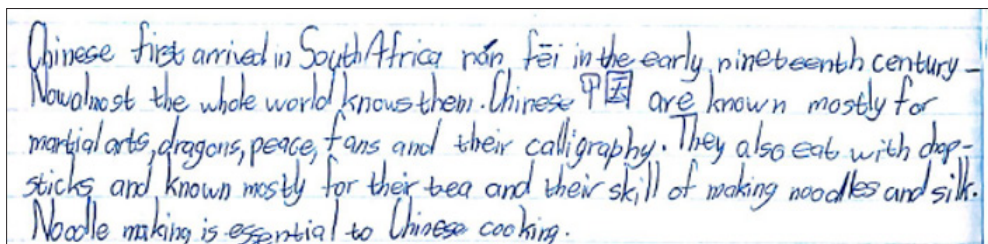 Chinese first arrived in South Africa nán fēi in the early nineteenth century
Now almost the whole world knows them. Chinese 中国 are known mostly for
martial arts, dragons, peace, fans and their calligraphy. They also eat with chop-
sticks and known mostly for their tea and their skill of making noodles and silk.
Noodle making is essential to Chinese cooking.